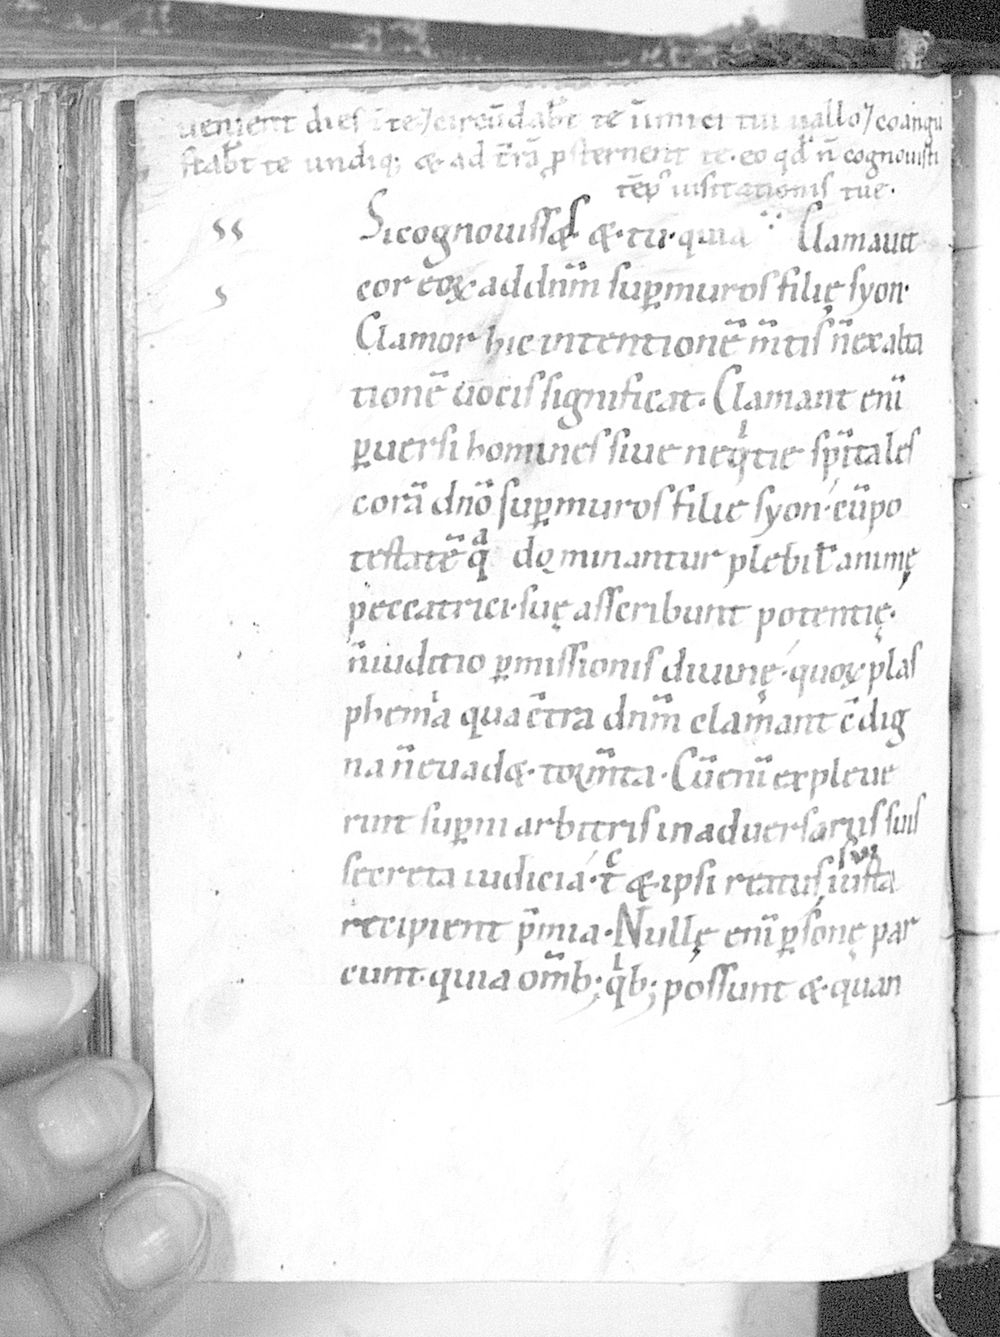 uenient dies ī te ⁊ circūdab̄t te īnimici tui uallo ⁊ coangu
stab̄t te undiq; & ad t̄rā ꝓsternent te. eo qd̓ n̄ cognouisti
tēp᾽ uisitationis tue.
Si cognouissę & tu. quia Clamauit
cor eoꝝ ad dn̄m suꝑ muros filię syon.
Clamor hic intentionē m̄tis n̄ exalta
tionē uocis significat. Clamant eni᷑
ꝑuersi homines siue neqͥtie sp̄itales
corā dn̄o suꝑ muros filie syon. cū po
testatē qͣ dominantur plebib᷒ animę
peccatrici. suę asscribunt potentię.
n̄ iuditio ꝑmissionis diuinę. quoꝝ plas
phemia qua c̄tra dn̄m clamant c̄dig
na n̄ euadę. torm̄ta. Cū enī expleue
rint suꝑni arbitris in aduersariis suis
secreta iudicia. tͨ & ipsi reatus sui iusta
recipient p̄mia. Nullę enī ꝑsonę par
cunt. quia om̄ib; qͥb; possunt & quan